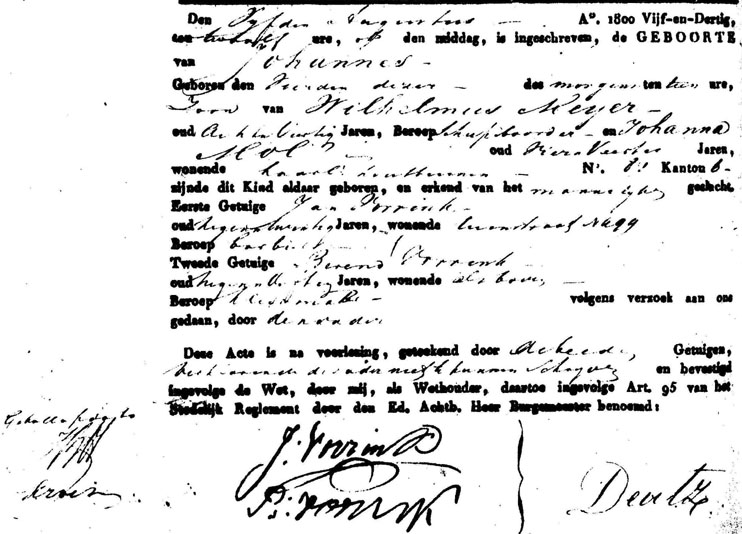 Den Vyfden Augustus — Ao. 1800 Vijf-en-Dertig,
ten twaalf ure, op den middag, is ingeschreven, de GEBOORTE
van Johannes —
Geboren den Vierden dezer — des morgens ten tien ure,
Zoon van Wilhelmus Meyer —
oud Acht en Veertig Jaren, Beroep en Johanna
Mol oud Jaren,
wonende N°. Kanton 6
zijnde dit Kind aldaar geboren, en erkend van het mannelyke geslacht.
Eerste Getuige Jan Vorrink —
oud Jaren, wonende No 99
Beroep
Tweede Getuige Berend Vorrink —
oud Jaren, wonende als boven
Beroep Kleermaker — volgens verzoek aan ons
gedaan, door de vader
Deze Acte is na voorlezing, geteekend door de beide Getuigen,
de vader niet kunnen Schryven en bevestigd
ingevolge de Wet, door mij, als Wethouder, daartoe ingevolge Art. 95 van het
Stedelijk Reglement door den Ed. Achtb. Heer Burgemeester benoemd:
J: Vorrink
B: Vorrink
Deutz